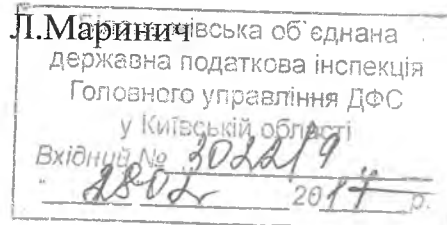 Л.Маринич
об`єднана
державна податкова інспекція
Головного управління ДФС
у Київській області
Вхідний № 30221/9
" 28 02 2017 р.